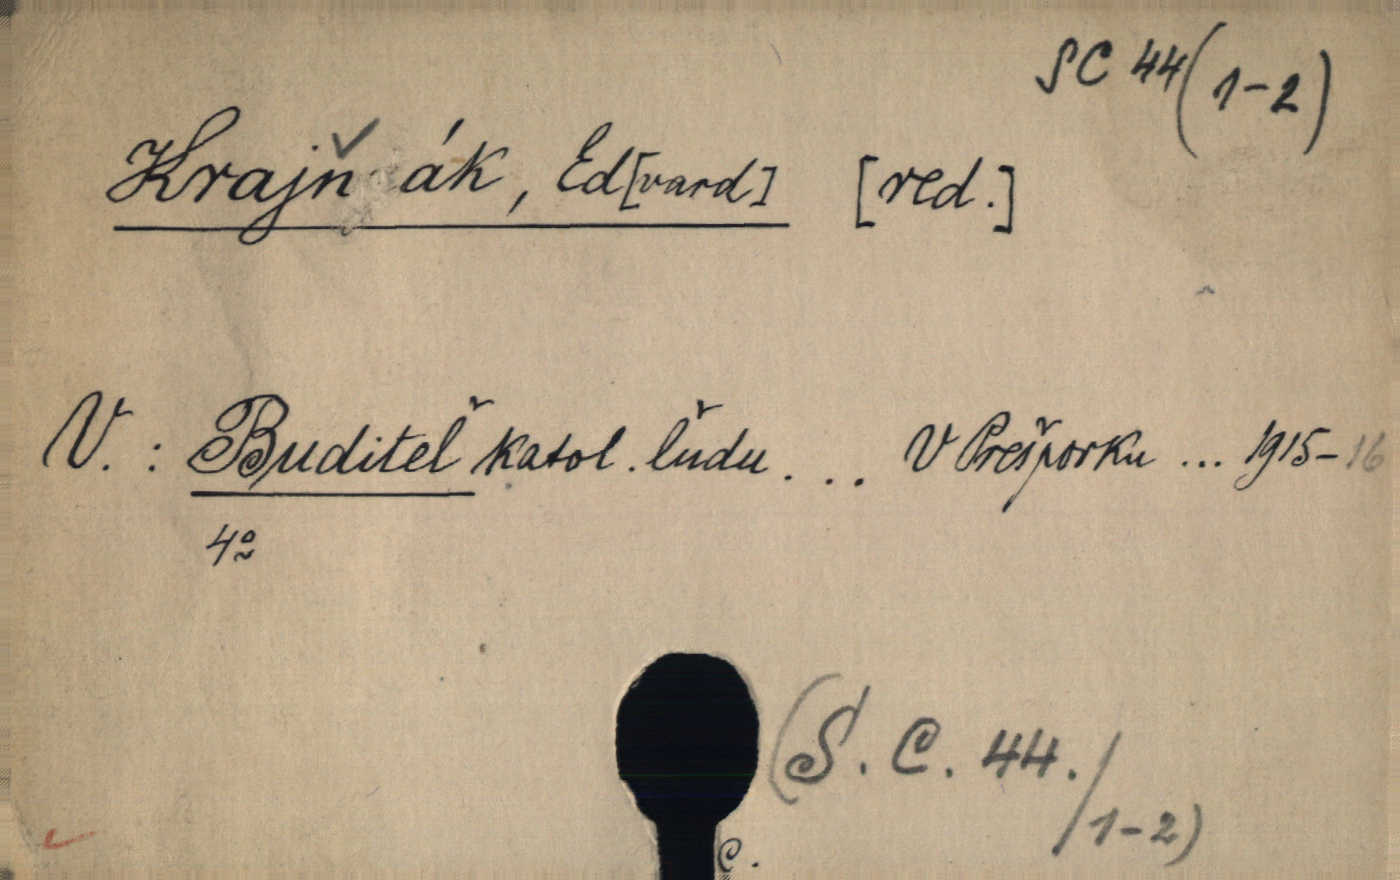 SC 44 (1-2)
Krajňák, Ed[vard] [red.]
V. : Buditeľ katol. ľudu... V Prešporku ... 1915-16
4º
(S. C. 44./1-2)
C.